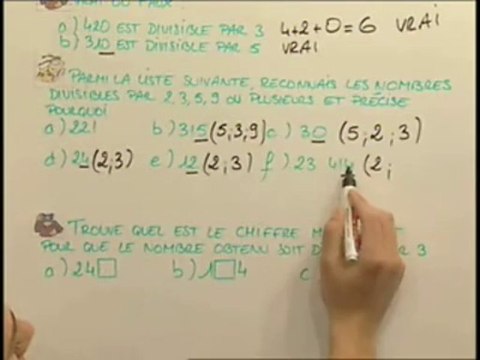 VRAI OU FAUX ?
a) 420 EST DIVISIBLE PAR 3 4+2+0=6 VRAI
b) 310 EST DIVISIBLE PAR 5 VRAI
PARMI LA LISTE SUIVANTE, RECONNAIS LES NOMBRES
DIVISIBLES PAR 2, 3, 5, 9 OU PLUSIEURS ET PRÉCISE
POURQUOI
a) 221 b) 315 (5,3,9) c) 30 (5;2;3)
d) 24 (2;3) e) 12 (2;3) f) 23 414 (2;
TROUVE QUEL EST LE CHIFFRE
POUR QUE LE NOMBRE OBTENU SOIT PAR 3
a) 24□ b) 1□4 c